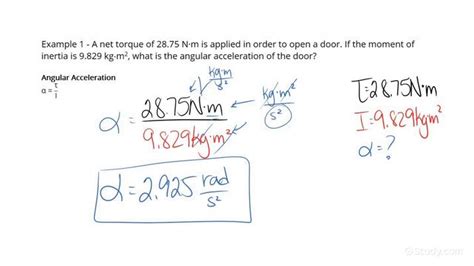 Example 1 - A net torque of 28.75 N·m is applied in order to open a door. If the moment of
inertia is 9.829 kg·m², what is the angular acceleration of the door?
Angular Acceleration
α = τ/I
kg·m/s²
α = 28.75N·m / 9.829 kg·m²
kg·m²/s²
α = 2.925 rad/s²
τ=28.75N·m
I=9.829kg·m²
α=?
Study.com